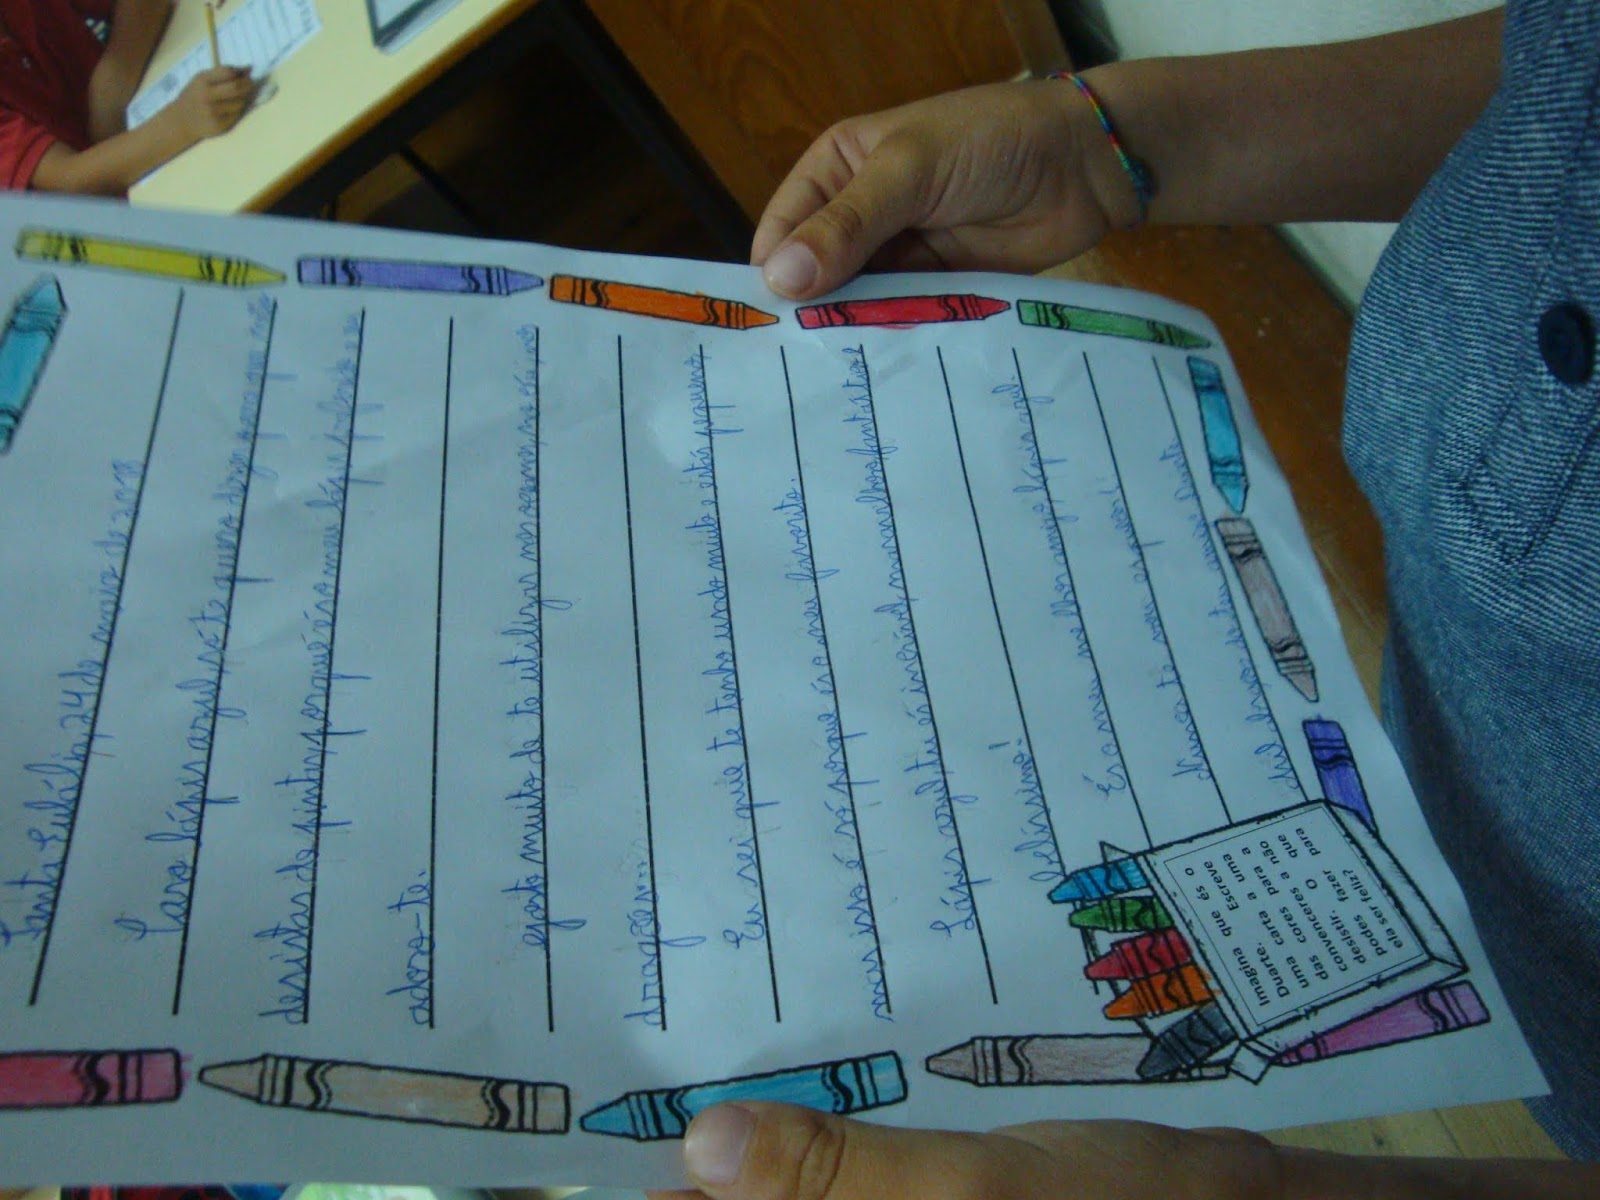 Santa Eulália, 24 de maio de 2018
Caro lápis azul, só te quero dizer para que não
desistas de pintar, porque és o meu lápis preferido e eu
adoro-te.
gosto muito de te utilizar nos
dragões...
Eu sei que te tenho usado muito e estás pequeno,
mas isso é só porque és o meu favorito.
Lápis azul, tu és incrível, maravilhoso, fantástico e
belíssimo!
És o meu melhor amigo, lápis azul.
Nunca te vou esquecer!
Mil beijos do teu amigo Duarte
Imagina que és o
Duarte. Escreve
uma carta a uma
das cores para a
convenceres a não
desistir. O que
podes fazer para
ela ser feliz?